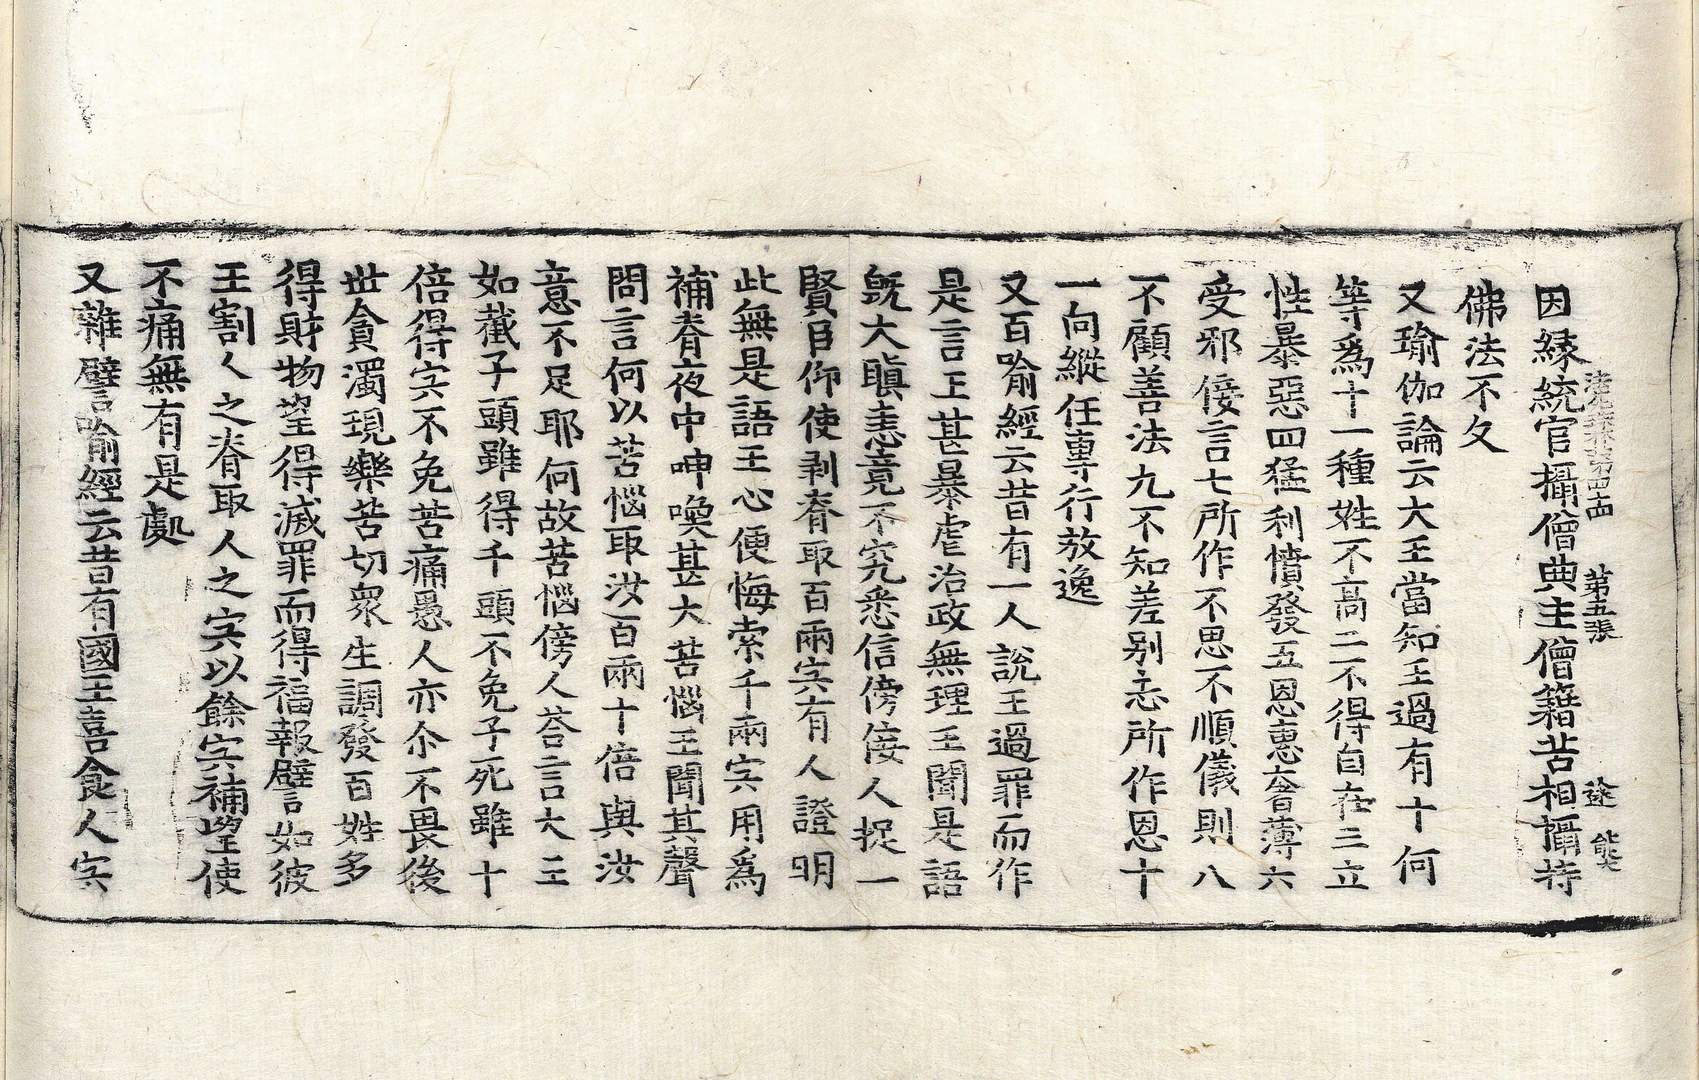 因縁統官攝僧典主僧籍苦相攝持
法苑珠林第四十四 第五張 逐 能
佛法不久
又瑜伽論云大王當知王過有十何
等爲十一種姓不高二不得自在三立
性暴惡四猛利憤發五恩惠奢薄六
受邪佞言七所作不思不順儀則八
不顧善法九不知差别忘所作恩十
一向縱任專行放逸
又百喻經云昔有一人說王過罪而作
是言王甚暴虐治政無理王聞是語
旣大瞋恚竟不究悉信傍佞人捉一
賢臣仰使剥脊取百兩宍有人證明
此無是語王心便悔索千兩宍用爲
補脊夜中呻喚甚大苦惱王聞其聲
問言何以苦惱取汝百兩十倍與汝
意不足耶何故苦惱傍人荅言大王
如截子頭雖得千頭不免子死雖十
倍得宍不免苦痛愚人亦尒不畏後
世貪濁現樂苦切衆生調發百姓多
得財物望得滅罪而得福報譬如彼
王割人之脊取人之宍以餘宍補望使
不痛無有是處
又雜譬喻經云昔有國王喜食人宍